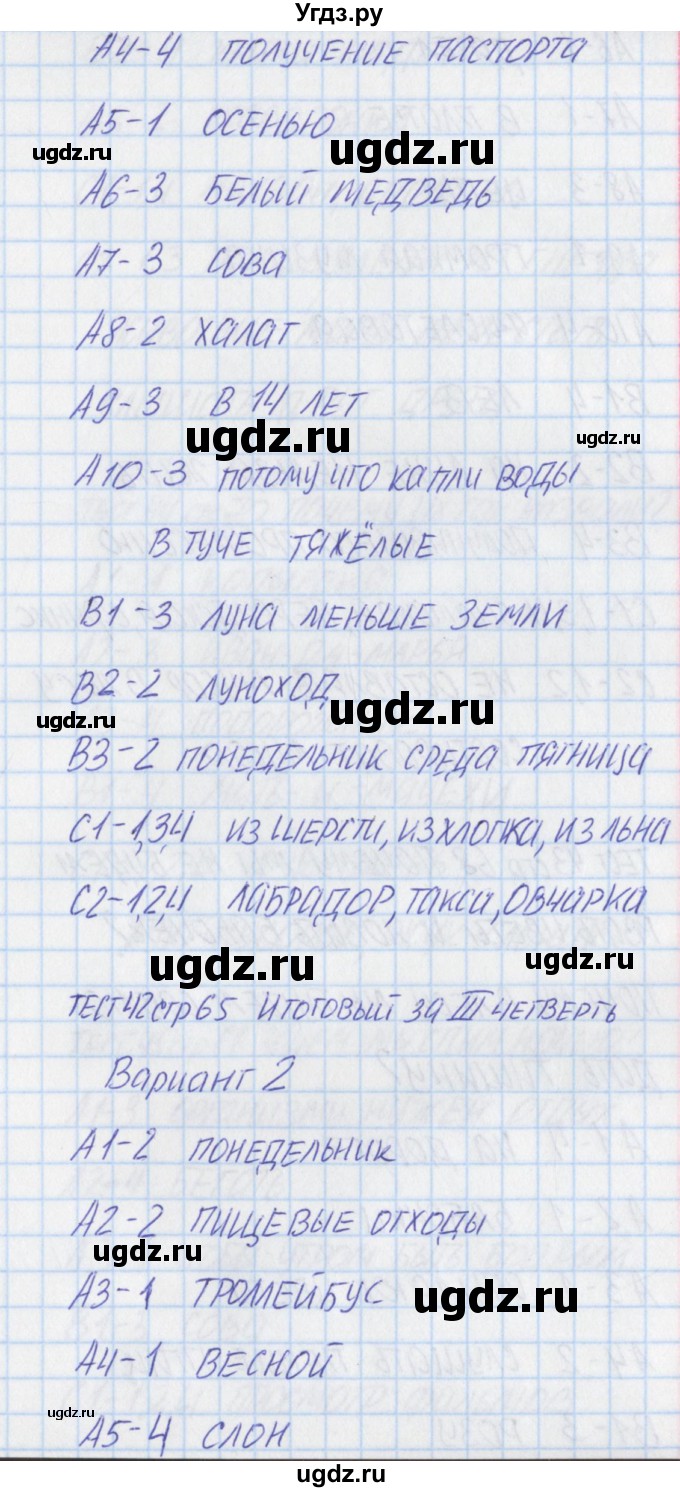 Угдз.ру
А4-4 ПОЛУЧЕНИЕ ПАСПОРТА
А5-1 ОСЕНЬЮ
ugdz.ru
ugdz.ru
А6-3 БЕЛЫЙ МЕДВЕДЬ
А7-3 СОВА
А8-2 ХАЛАТ
А9-3 В 14 ЛЕТ
ugdz.ru
ugdz.ru
А10-3 ПОТОМУ ЧТО КАПЛИ ВОДЫ
В ТУЧЕ ТЯЖЁЛЫЕ
В1-3 ЛУНА МЕНЬШЕ ЗЕМЛИ
В2-2 ЛУНОХОД
ugdz.ru
ugdz.ru
В3-2 ПОНЕДЕЛЬНИК СРЕДА ПЯТНИЦА
С1-1,3,4 ИЗ ШЕРСТИ, ИЗ ХЛОПКА, ИЗ ЛЬНА
С2-1,2,4 ЛАБРАДОР, ТАКСА, ОВЧАРКА
ugdz.ru
ugdz.ru
ТЕСТ 42 стр 65 Итоговый за III ЧЕТВЕРТЬ
Вариант 2
А1-2 ПОНЕДЕЛЬНИК
А2-2 ПИЩЕВЫЕ ОТХОДЫ
ugdz.ru
А3-1 ТРОЛЛЕЙБУС
ugdz.ru
А4-1 ВЕСНОЙ
ugdz.ru
А5-4 СЛОН
ugdz.ru
ugdz.ru